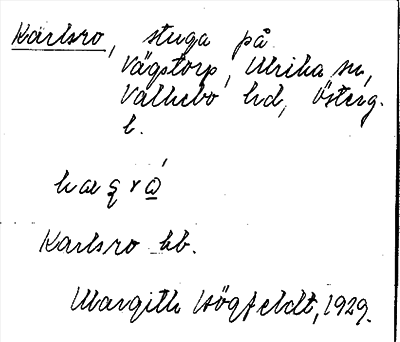 Karlsro, stuga på
Vägstorp, Ulrika sn,
Valkebo hd, Österg.
l.
Karlsro hb.
Margith Högfeldt, 1929.